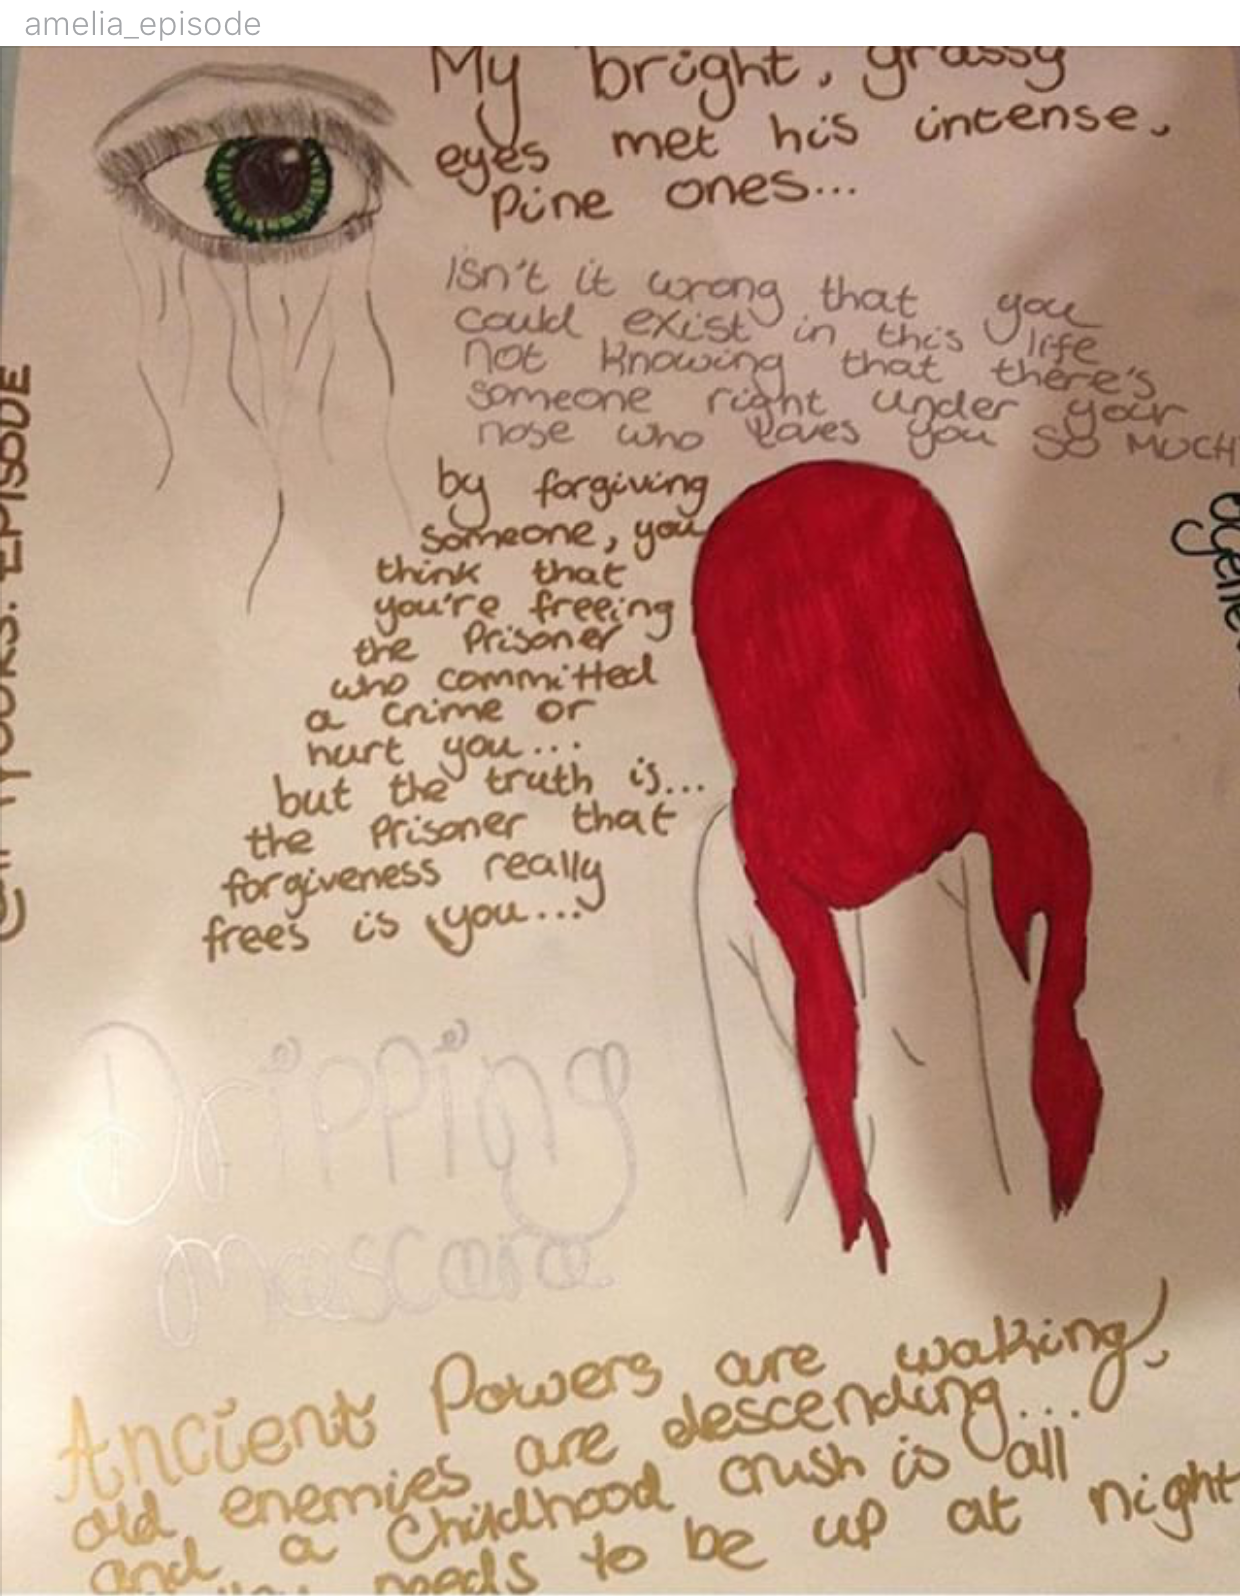 amelia_episode
My bright, grassy
eyes met his intense,
Pine ones...
Isn't it wrong that you
could exist in this life
not knowing that there's
someone right under your
nose who loves you SO MUCH
by forgiving
someone, you
think that
you're freeing
the Prisoner
who committed
a crime or
hurt you...
but the truth is...
the Prisoner that
forgiveness really
frees is you...
Dripping
mascara
Ancient Powers are waking,
old enemies are descending...
and a Childhood crush is all
needs to be up at night
EPISODE